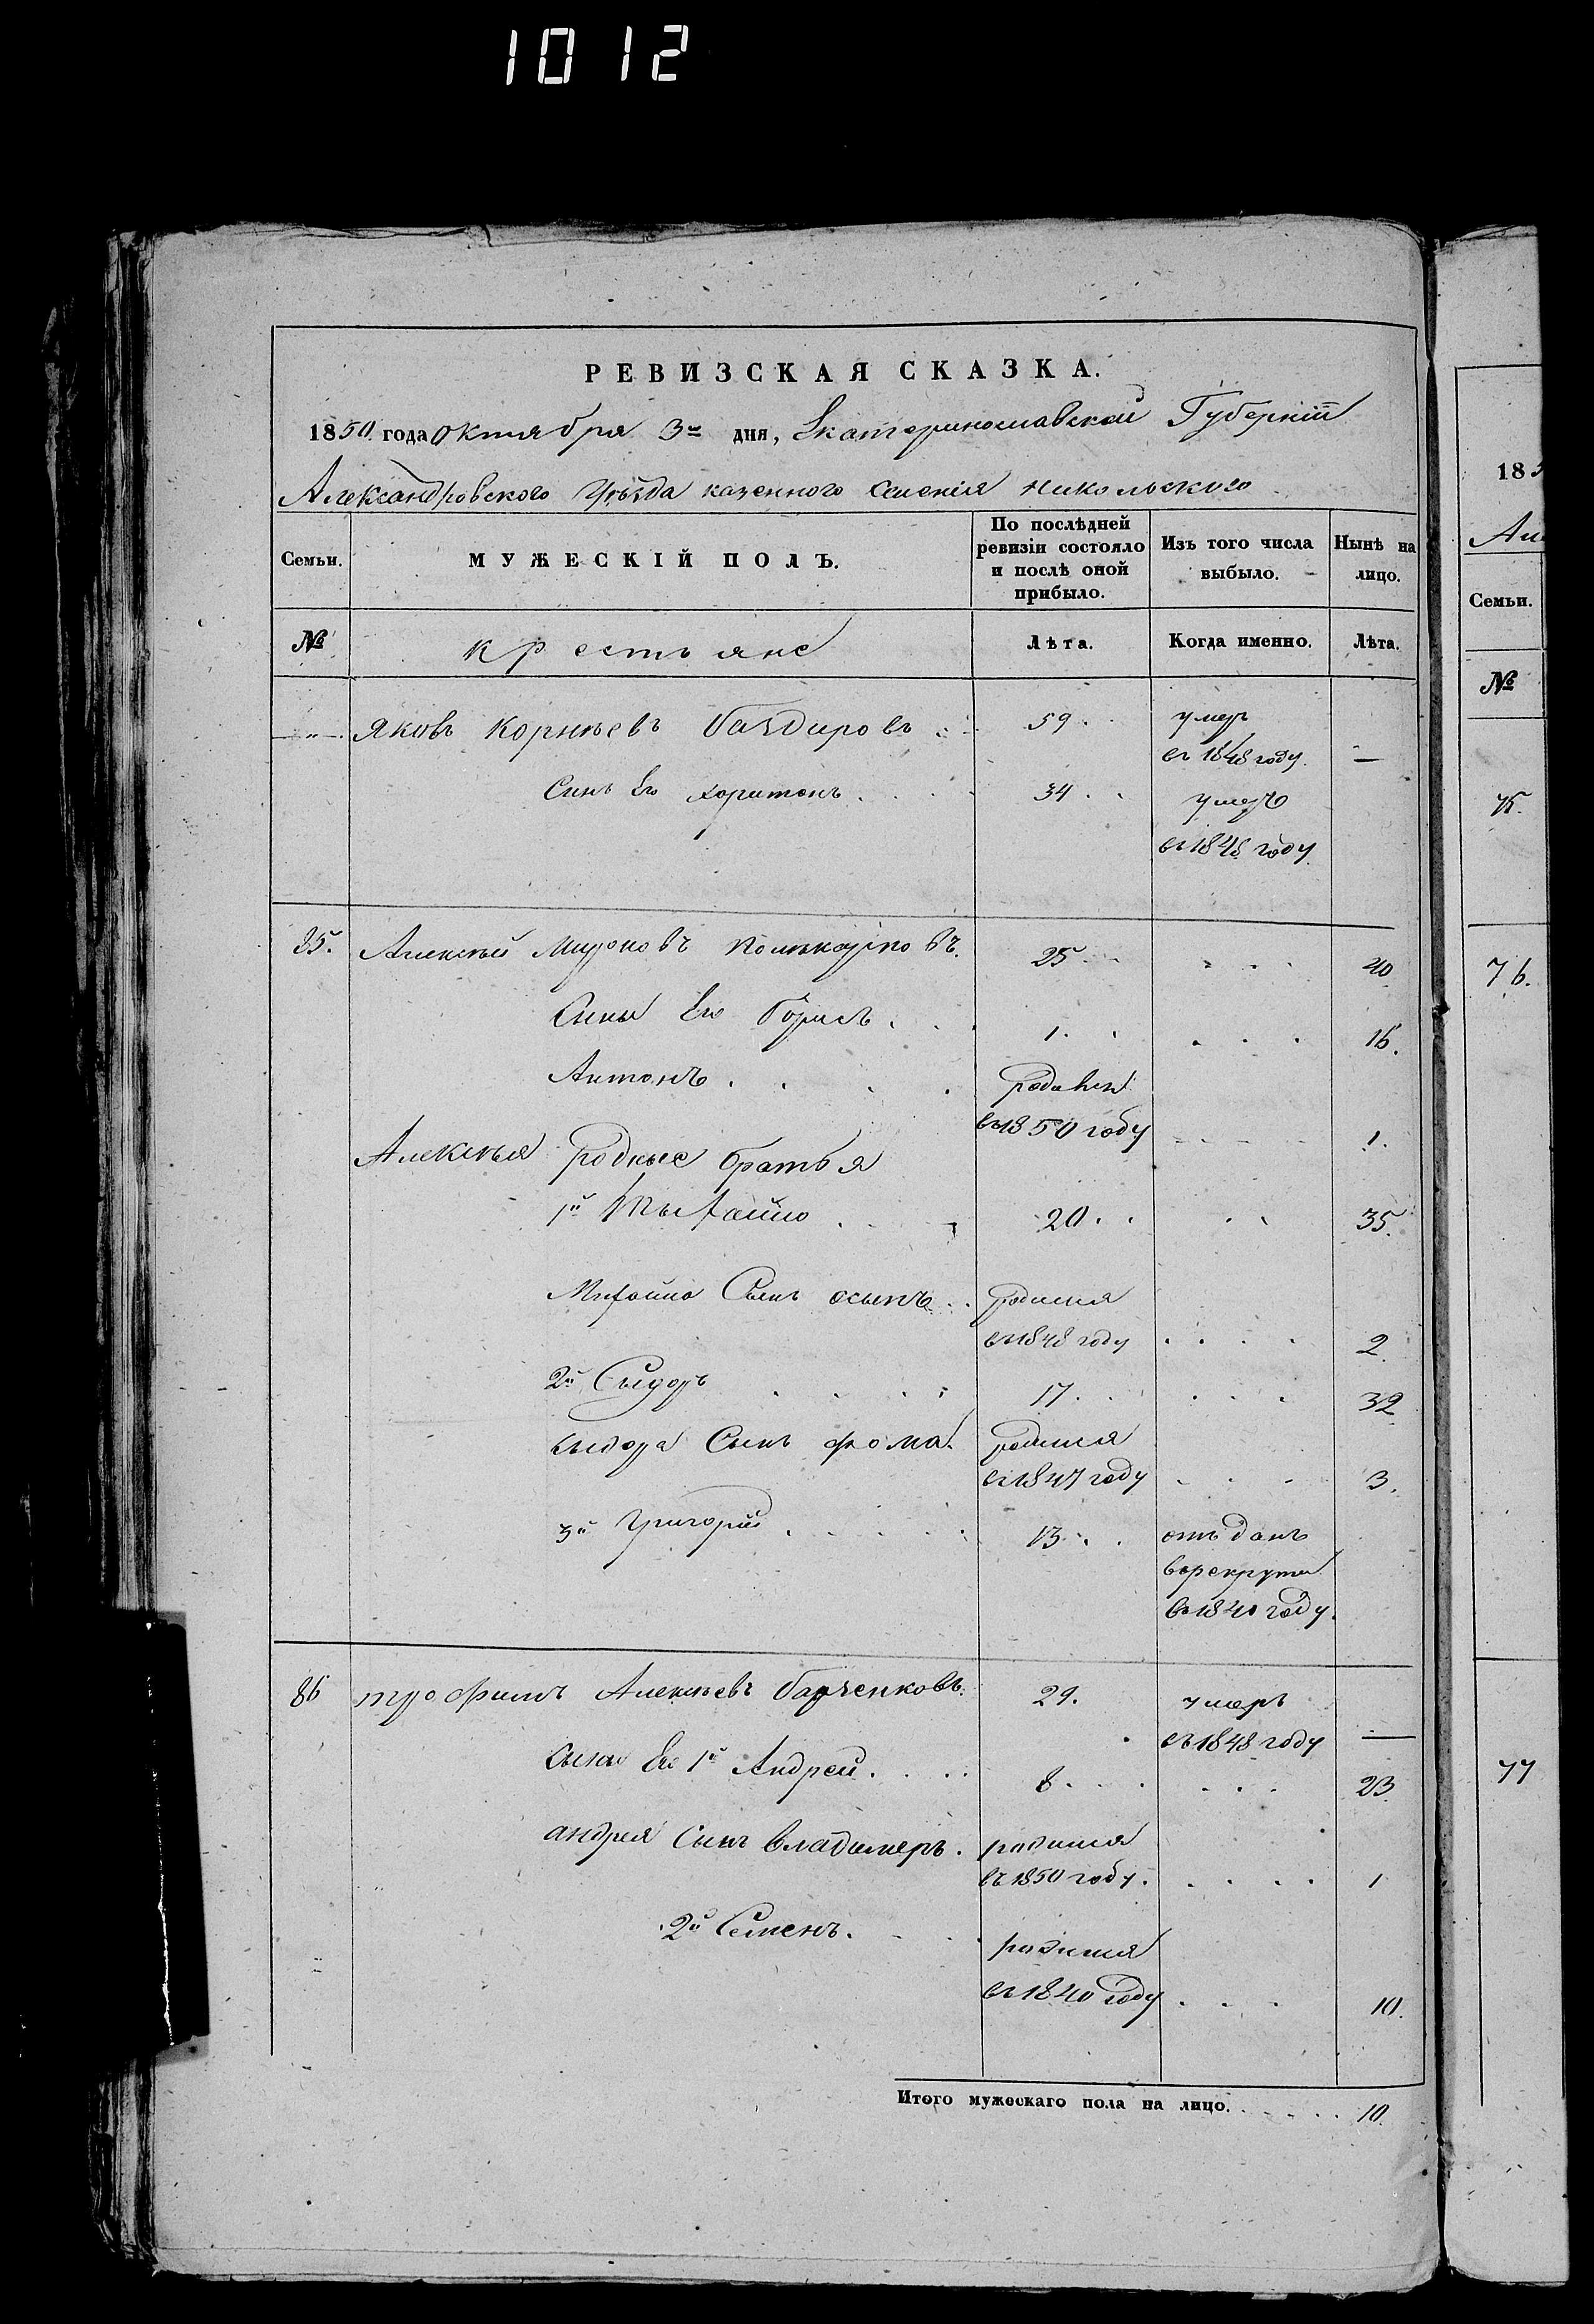 1012
РЕВИЗСКАЯ СКАЗКА.
1850. года октября 3го дня, Екатеринославской Губерніи
Александровского Уѣзда казенного селенія Никольского
Семьи. МУЖЕСКІЙ ПОЛЪ. По послѣдней ревизіи состояло и послѣ оной прибыло. Изъ того числа выбыло. Нынѣ на лицо.
№ крестьяне Лѣта. Когда именно. Лѣта.
— " — Яковъ Корнѣевъ 59 умеръ
въ 1848 году. —
Синъ Его Харитонъ 34 умеръ
въ 1848 году.
85. Алексѣй Мироновъ 25 40
Сины Его Борисъ 1 16.
Антонъ родився
въ 1850 году 1.
Алексѣя родные братья
1й Михайло 20 35.
Михайла Сынъ осипъ родился
въ 1848 году 2.
2й Сыдоръ 17 32
Сыдора Сынъ фома родился
въ 1847 году 3.
3й Григорій 13 отъданъ
ворекруты
въ 1840 году.
86 трофимъ Алексѣевъ 29. умеръ
въ 1848 году —
сыны Его 1й Андрей 8 23
андрея Сынъ владимеръ. родился
въ 1850 году. 1
2й Семенъ. родился
въ 1840 году 10.
Итого мужескаго пола на лицо. 10.
185
Але
Семьи.
№
75.
76.
77